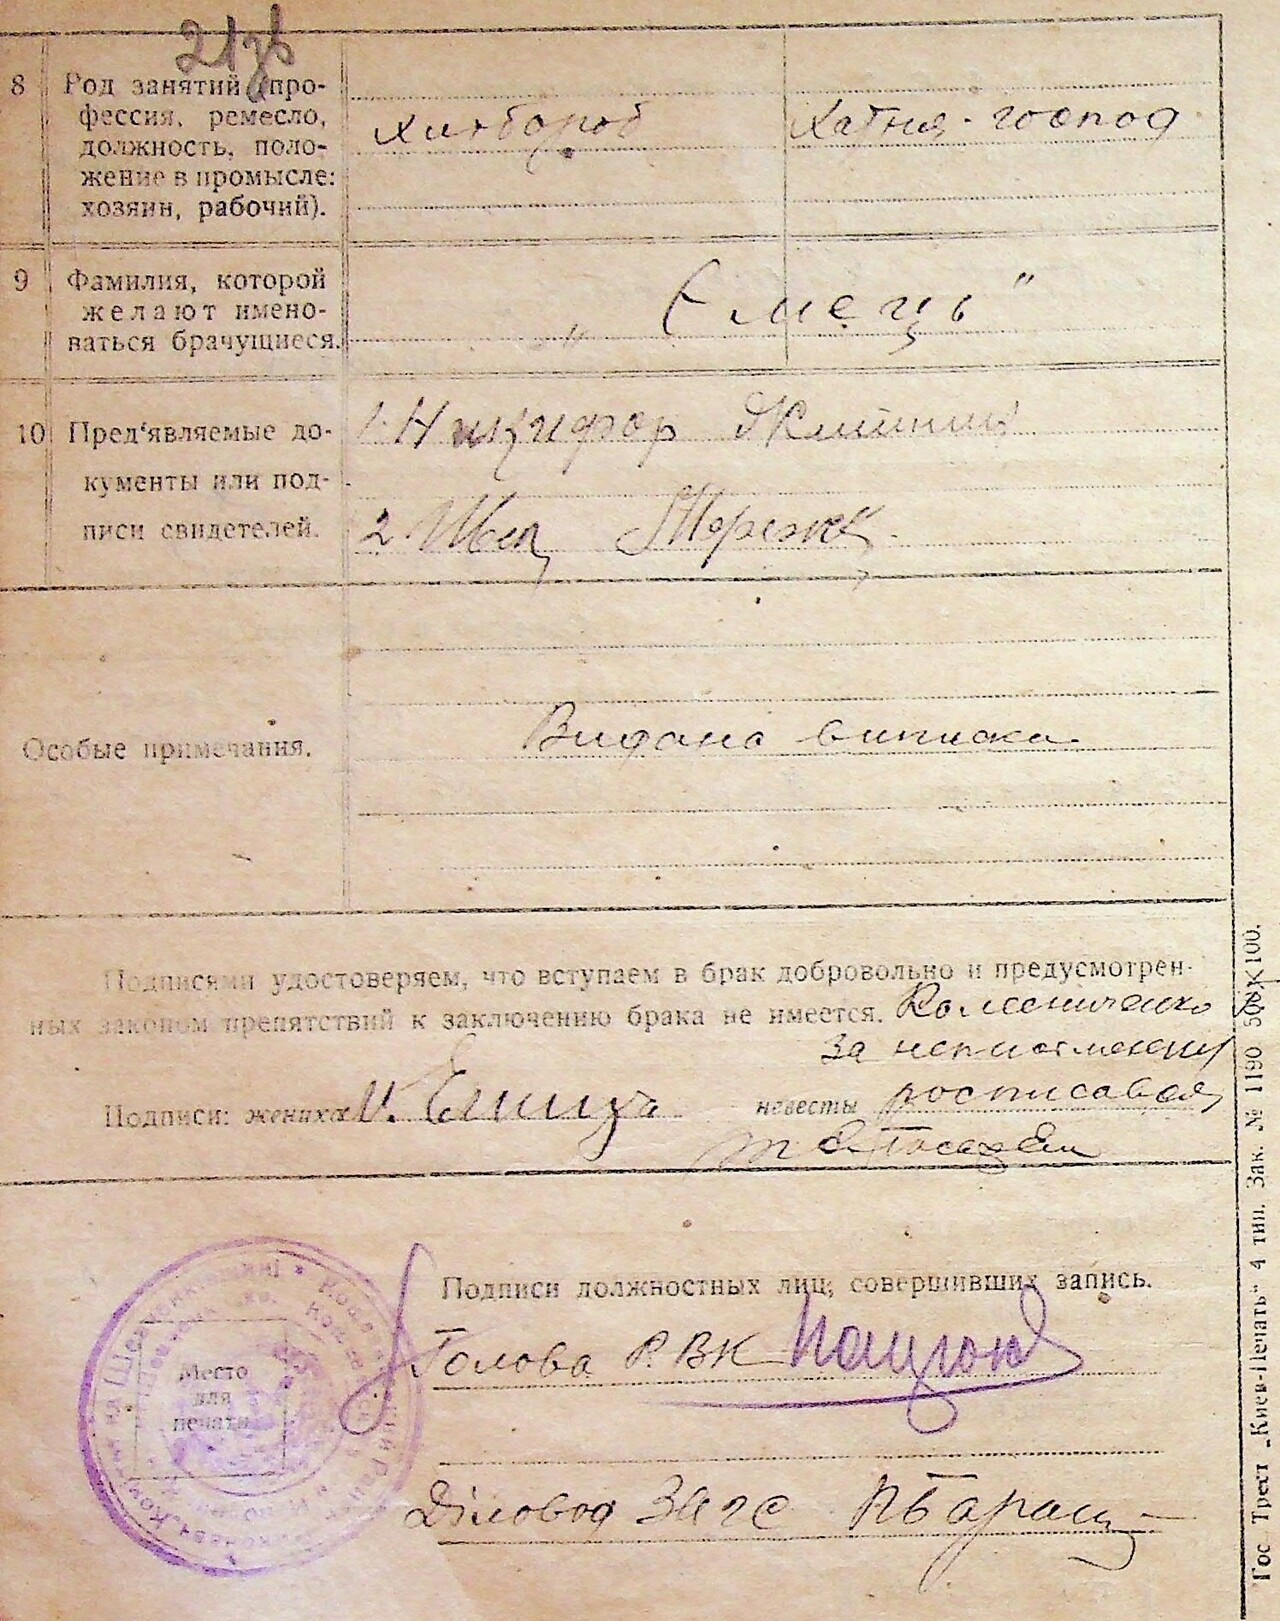 21зв
8 Род занятий (про-
фессия, ремесло,
должность, поло-
жение в промысле:
хозяин, рабочий).
хлібороб
хатня-господ
9 Фамилия, которой
желают имено-
ваться брачущиеся.
„Ємець"
10 Пред'являемые до-
кументы или под-
писи свидетелей.
1. Никифор
2 Швец
Особые примечания.
Видана виписка
Подписями удостоверяем, что вступаем в брак добровольно и предусмотрен-
ных законом препятствий к заключению брака не имеется.
За неписменну
росписався
Подписи: жениха
невесты
Подписи должностных лиц, совершивших запись.
Голова РВК
Место
для
печати
Діловод ЗАГС
Гос Трест „Киев-Печать" 4 тип. Зак. № 1190 500×100.